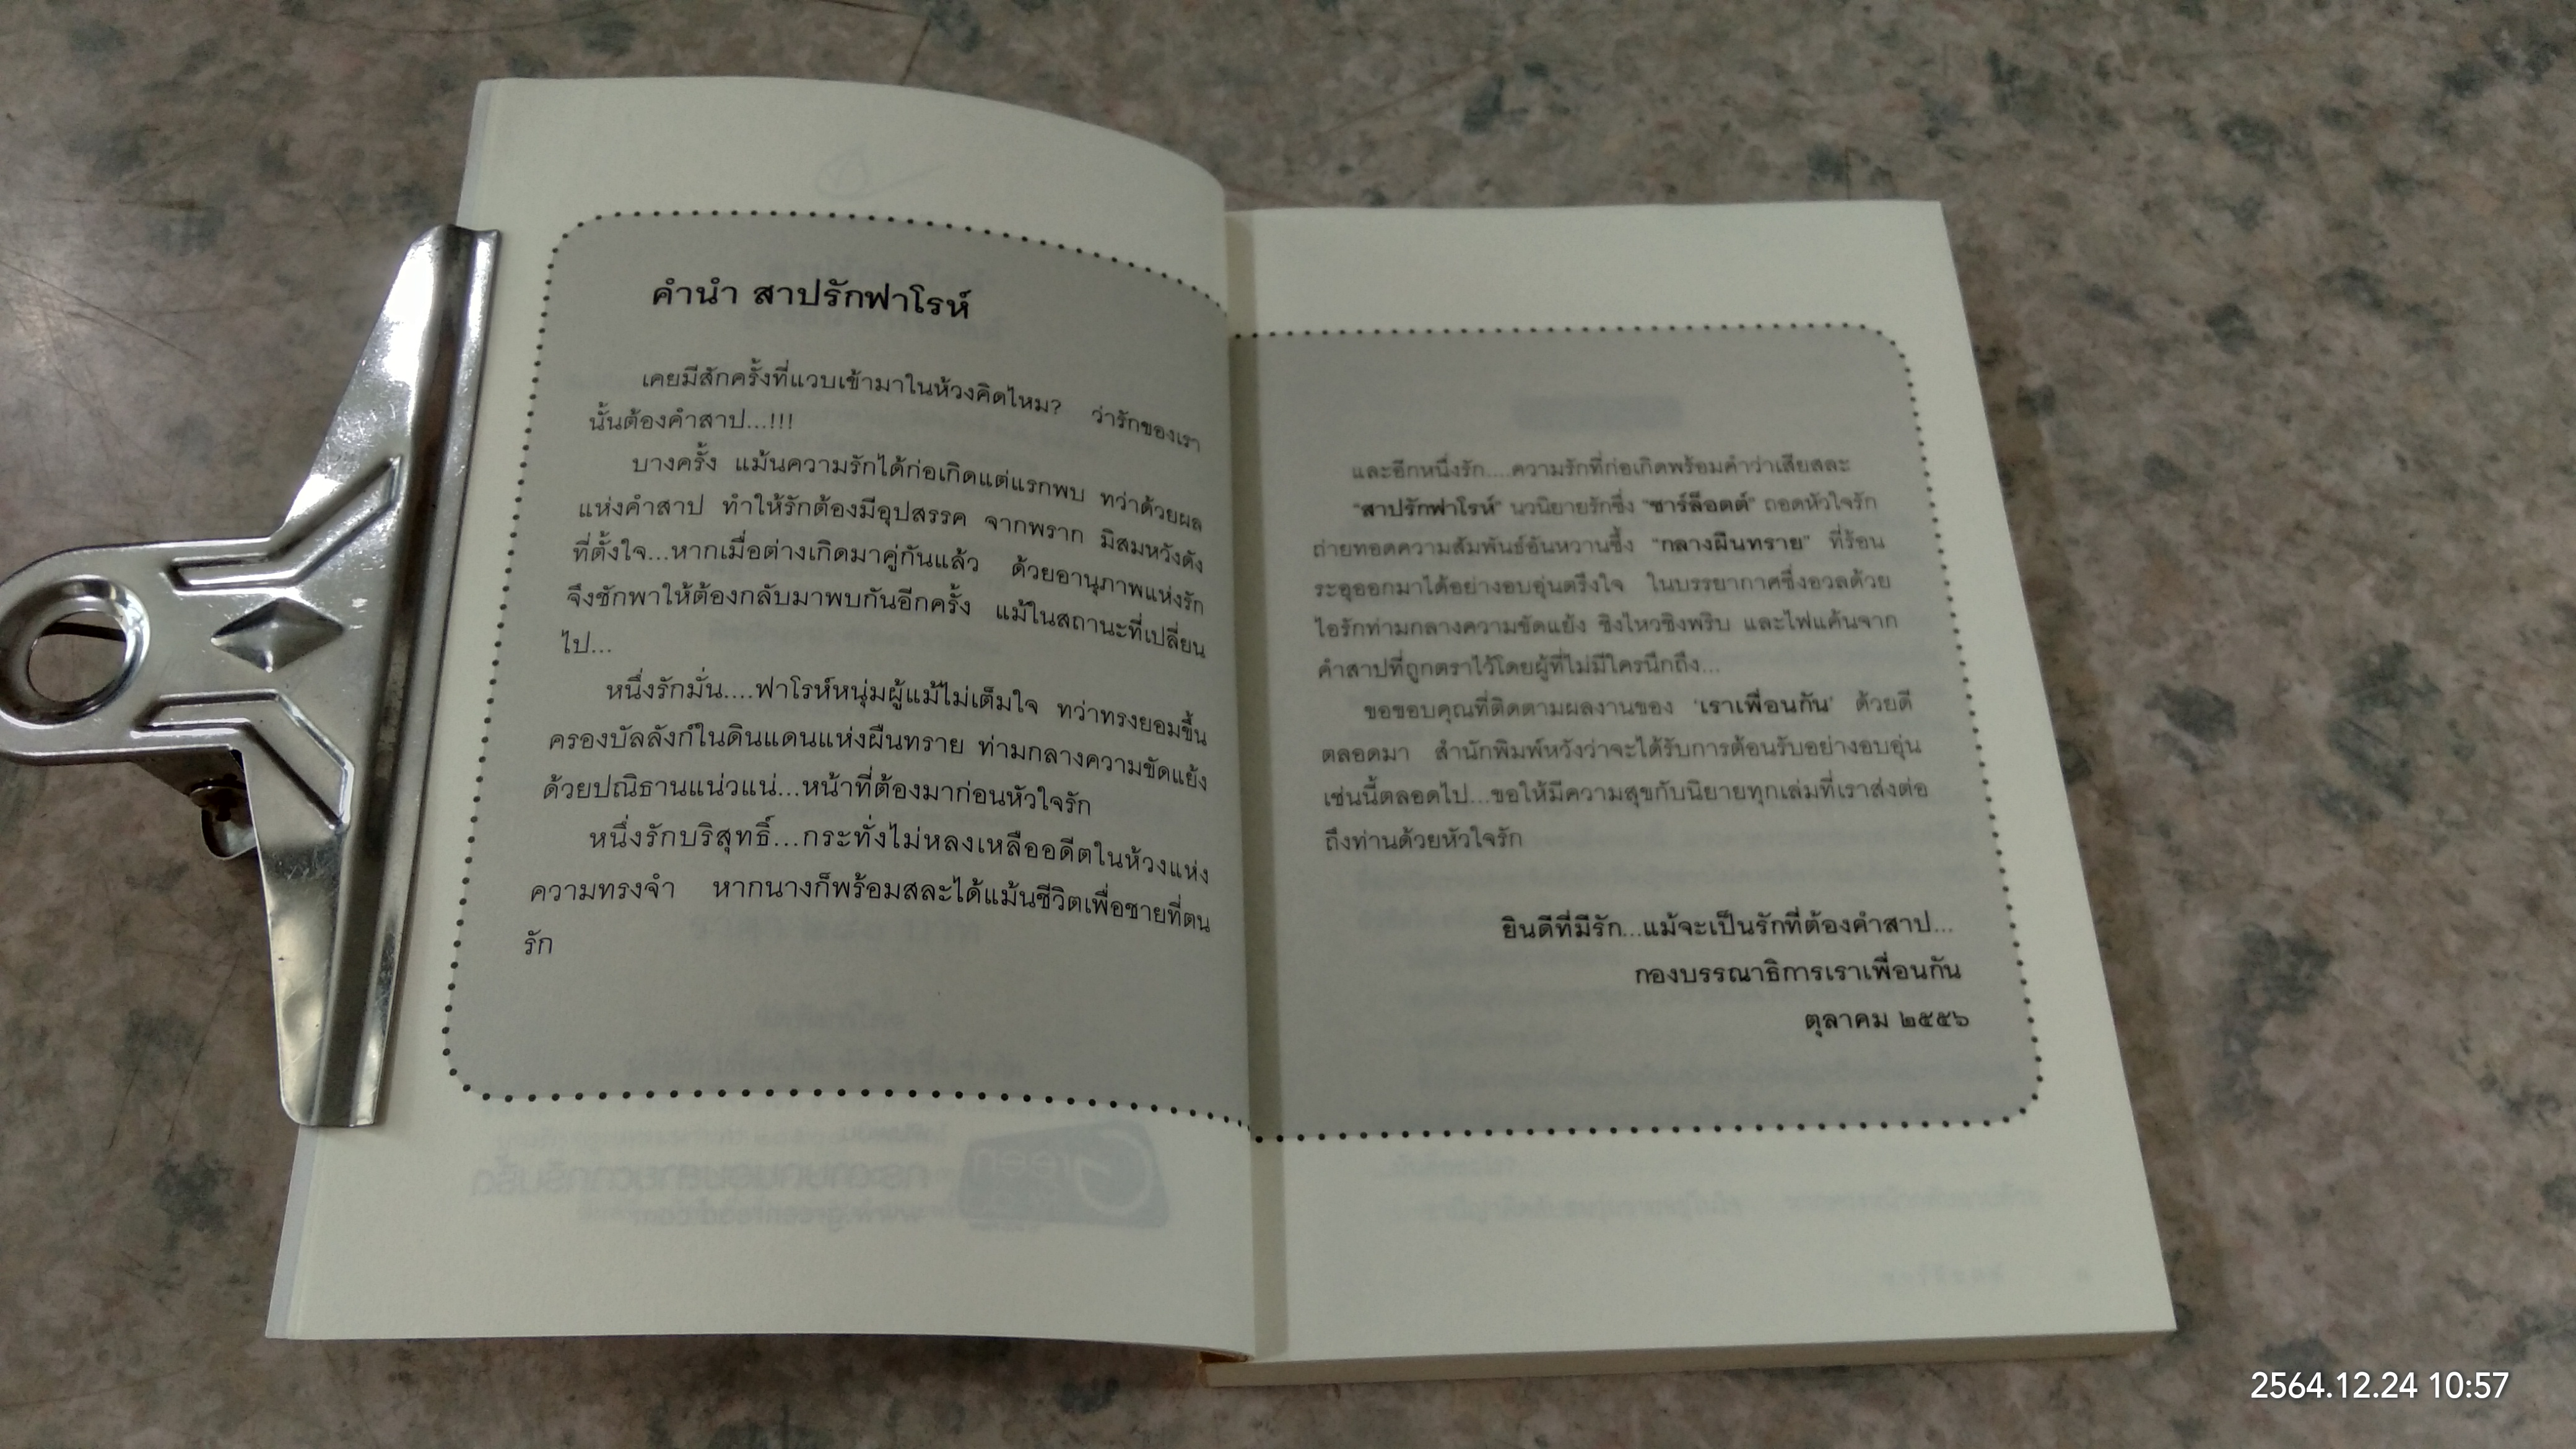 คำนำ สาปรักฟาโรห์
เคยมีสักครั้งที่แวบเข้ามาในห้วงคิดไหม? ว่ารักของเรา
นั้นต้องคำสาป...!!!
บางครั้ง แม้นความรักได้ก่อเกิดแต่แรกพบ ทว่าด้วยผล
แห่งคำสาป ทำให้รักต้องมีอุปสรรค จากพราก มิสมหวังดัง
ที่ตั้งใจ...หากเมื่อต่างเกิดมาคู่กันแล้ว ด้วยอานุภาพแห่งรัก
จึงชักพาให้ต้องกลับมาพบกันอีกครั้ง แม้ในสถานะที่เปลี่ยน
ไป...
หนึ่งรักมั่น....ฟาโรห์หนุ่มผู้แม้ไม่เต็มใจ ทว่าทรงยอมขึ้น
ครองบัลลังก์ในดินแดนแห่งผืนทราย ท่ามกลางความขัดแย้ง
ด้วยปณิธานแน่วแน่...หน้าที่ต้องมาก่อนหัวใจรัก
หนึ่งรักบริสุทธิ์...กระทั่งไม่หลงเหลืออดีตในห้วงแห่ง
ความทรงจำ หากนางก็พร้อมสละได้แม้นชีวิตเพื่อชายที่ตน
รัก
และอีกหนึ่งรัก....ความรักที่ก่อเกิดพร้อมคำว่าเสียสละ
"สาปรักฟาโรห์" นวนิยายรักซึ่ง "ชาร์ล็อตต์" ถอดหัวใจรัก
ถ่ายทอดความสัมพันธ์อันหวานซึ้ง "กลางผืนทราย" ที่ร้อน
ระอุออกมาได้อย่างอบอุ่นตรึงใจ ในบรรยากาศซึ่งอวลด้วย
ไอรักท่ามกลางความขัดแย้ง ชิงไหวชิงพริบ และไฟแค้นจาก
คำสาปที่ถูกตราไว้โดยผู้ที่ไม่มีใครนึกถึง...
ขอขอบคุณที่ติดตามผลงานของ 'เราเพื่อนกัน' ด้วยดี
ตลอดมา สำนักพิมพ์หวังว่าจะได้รับการต้อนรับอย่างอบอุ่น
เช่นนี้ตลอดไป...ขอให้มีความสุขกับนิยายทุกเล่มที่เราส่งต่อ
ถึงท่านด้วยหัวใจรัก
ยินดีที่มีรัก...แม้จะเป็นรักที่ต้องคำสาป...
กองบรรณาธิการเราเพื่อนกัน
ตุลาคม ๒๕๕๖
2564.12.24 10:57